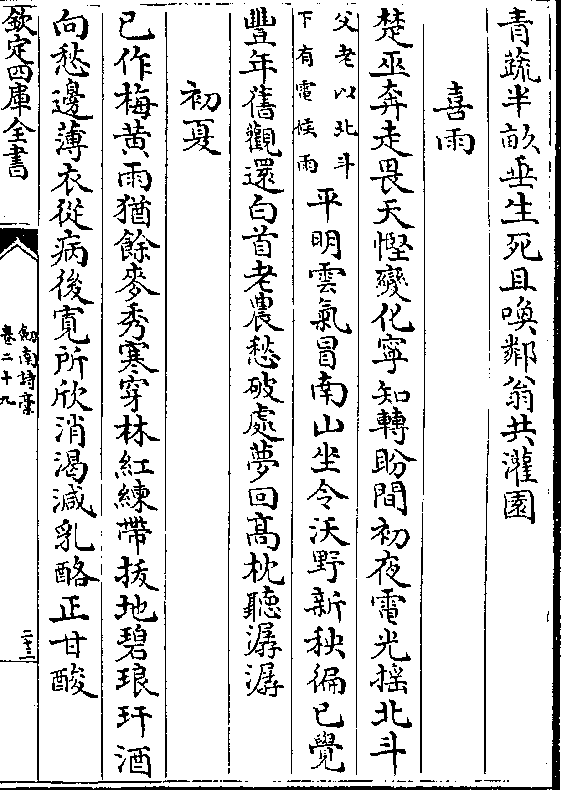 青蔬半畝垂生死且喚鄰翁共灌園
喜雨
楚巫奔走畏天慳變化寧知轉盼間初夜電光揺北斗
父老以北斗
下有電候雨
平明雲氣冒南山坐令沃野新秧徧已覺
豐年舊觀還白首老農愁破處夢回髙枕聽潺潺
初夏
已作梅黄雨猶餘麥秀寒穿林紅練帶拔地碧琅玕酒
向愁邊薄衣從病後寛所欣消渇減乳酪正甘酸
欽定四庫全書
劍南詩藁
卷二十九
二十三